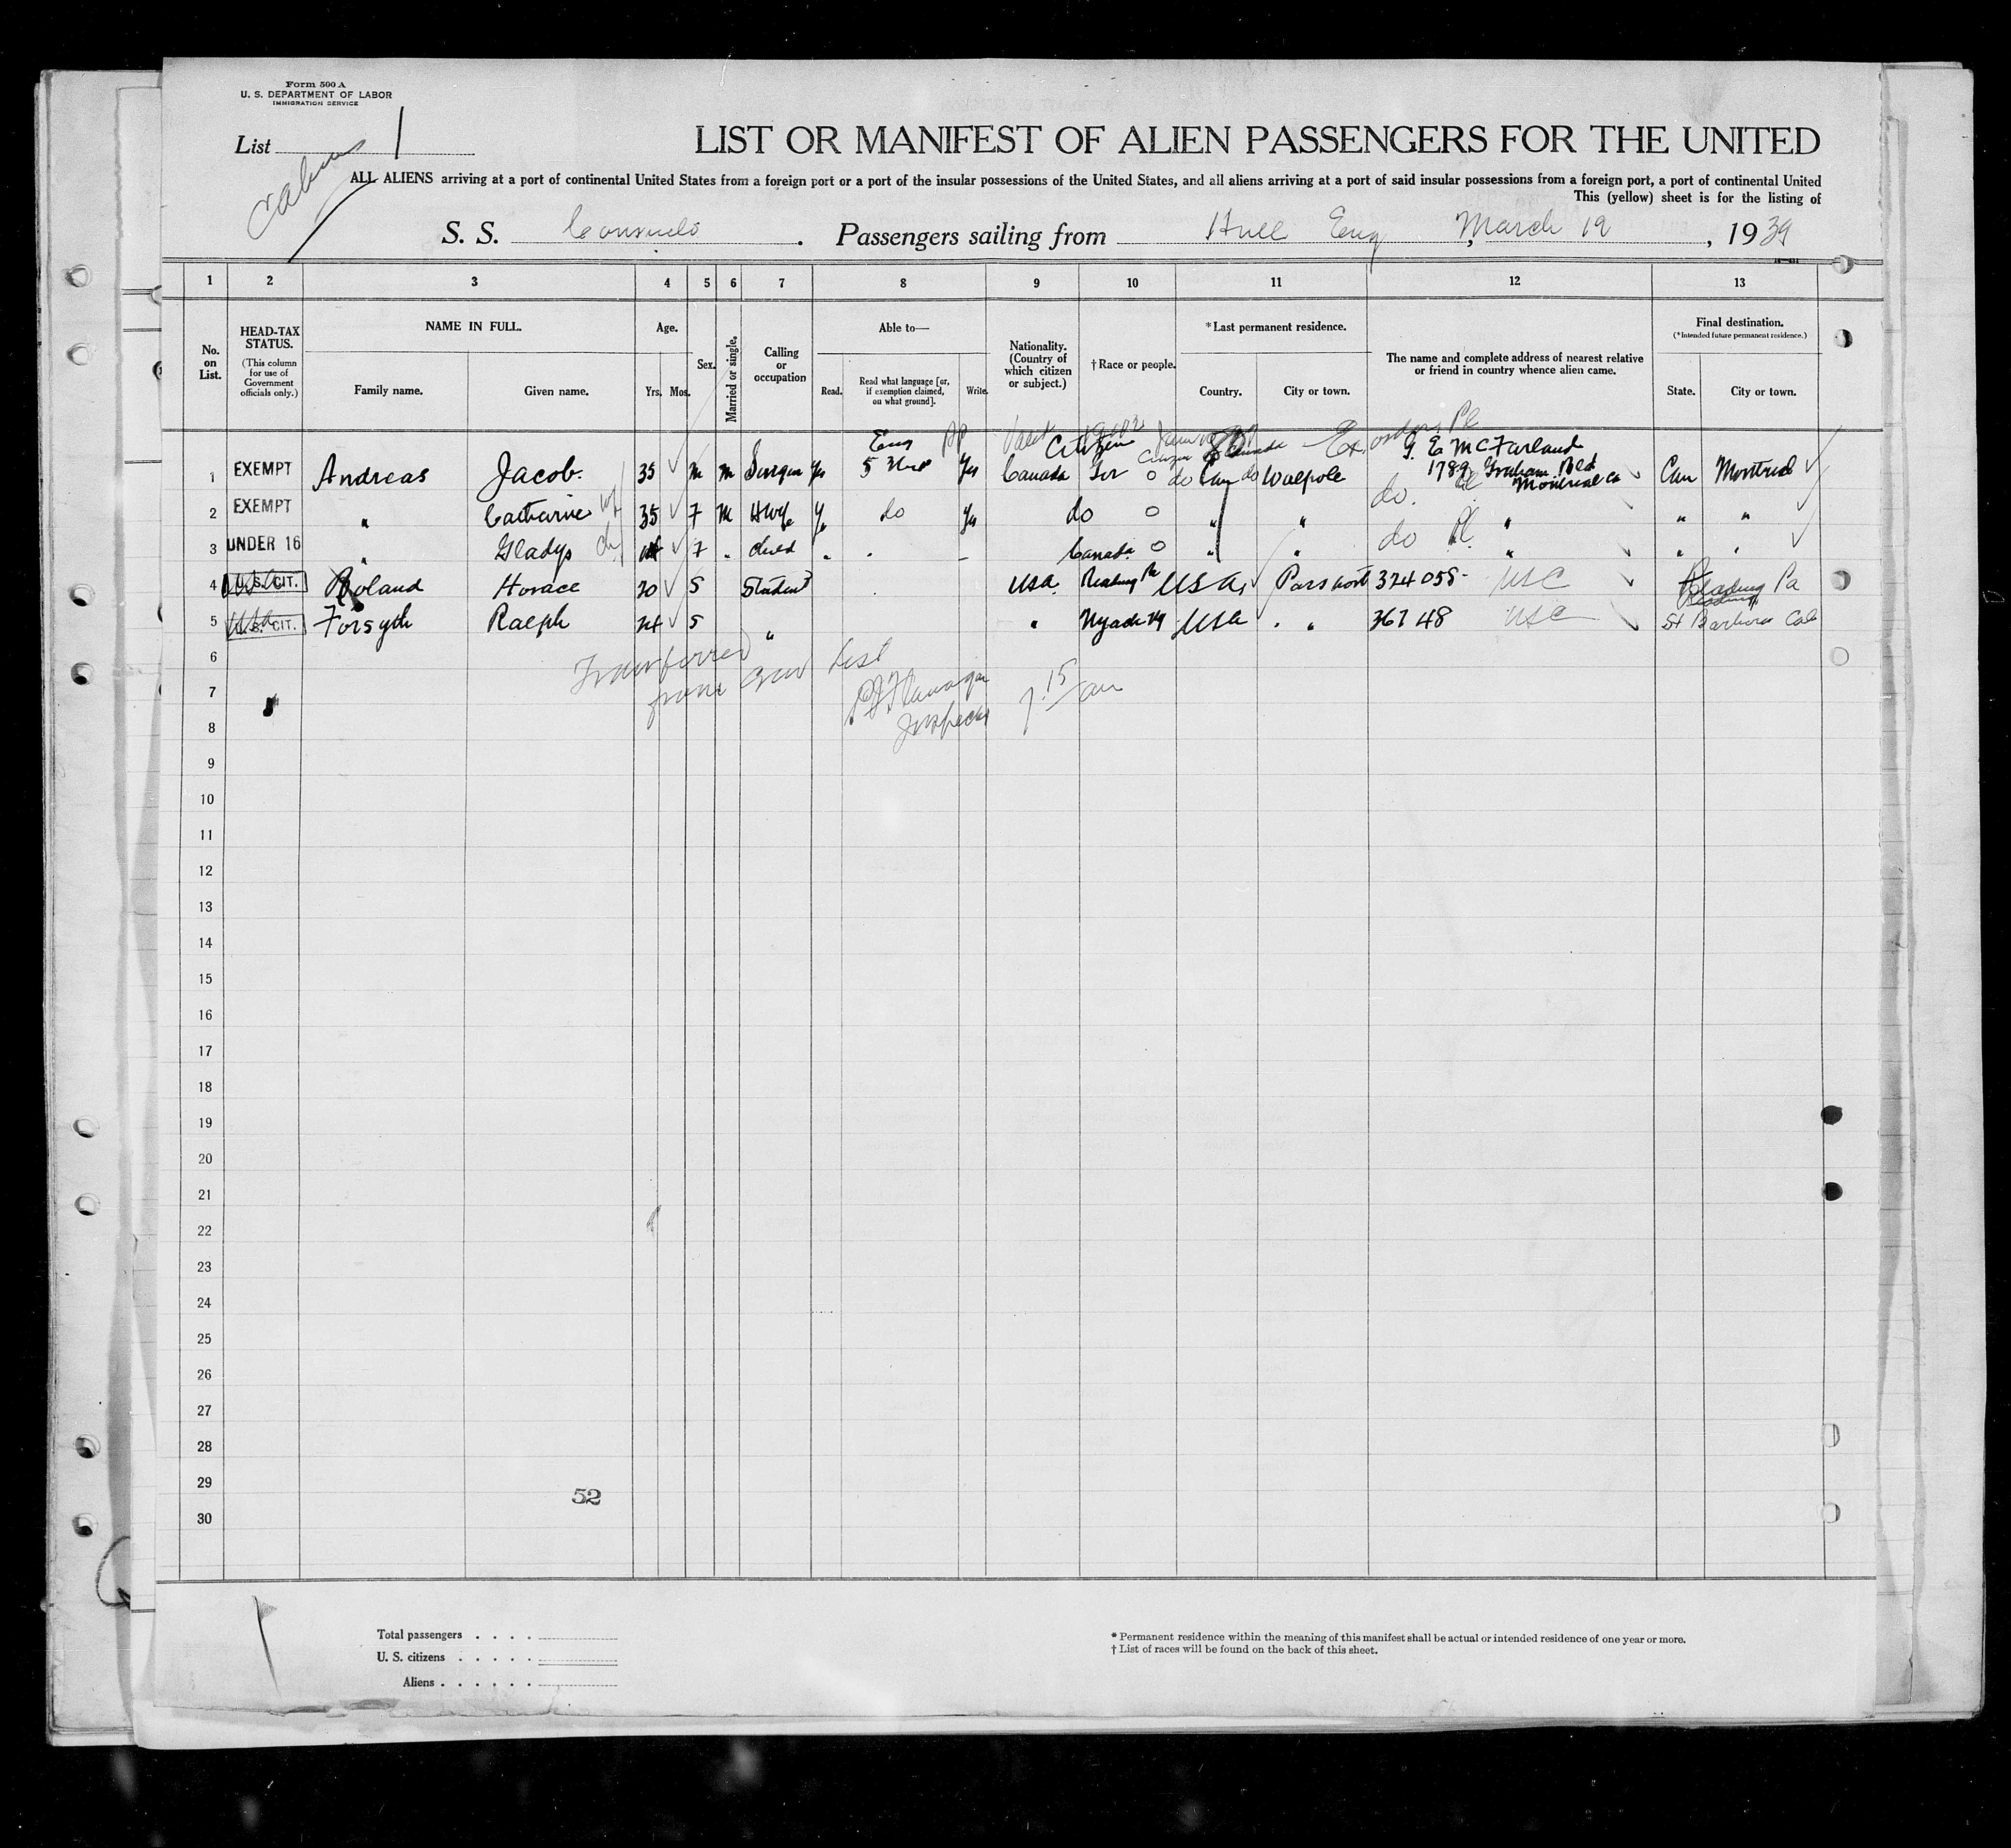 Form 500 A
U. S. DEPARTMENT OF LABOR
IMMIGRATION SERVICE
List 1
LIST OR MANIFEST OF ALIEN PASSENGERS FOR THE UNITED
ALL ALIENS arriving at a port of continental United States from a foreign port or a port of the insular possessions of the United States, and all aliens arriving at a port of said insular possessions from a foreign port, a port of continental United
This (yellow) sheet is for the listing of
S. S. Consuelo. Passengers sailing from Hull Eng, March 19, 1939
1 2 3 4 5 6 7 8 9 10 11 12 13
No. on List.
HEAD-TAX STATUS.
(This column for use of Government officials only.)
NAME IN FULL.
Family name. Given name.
Age.
Yrs. Mos.
Sex.
Married or single.
Calling or occupation
Able to—
Read. Read what language [or, if exemption claimed, on what ground]. Write.
Nationality. (Country of which citizen or subject.)
†Race or people.
*Last permanent residence.
Country. City or town.
The name and complete address of nearest relative or friend in country whence alien came.
Final destination.
(*Intended future permanent residence.)
State. City or town.
Eng Citizen G. E. McFarland
1 EXEMPT Andreas Jacob. 35 M M Yes Yes Canada do Can do Walpole 1789 Graham Bld Can Montreal
Montreal Ca
2 EXEMPT " Catherine wf 35 F M HWife Y do Yes do " " do. " " "
3 UNDER 16 " Gladys ch F " child " - Canada " " do " " "
4 U. S. CIT. Roland Horace 20 S Student USA. Reading Pa USA Passport 324058 USC Reading Pa
5 U. S. CIT. Forsyth Ralph 24 S " " Nyack NY USA " " 36748 USC St Barbara Cal
6
Transferred from Crew List
7
Inspector
7.15 am
8
9
10
11
12
13
14
15
16
17
18
19
20
21
22
23
24
25
26
27
28
29
52
30
Total passengers . . . .
U. S. citizens . . . . .
Aliens . . . . . .
* Permanent residence within the meaning of this manifest shall be actual or intended residence of one year or more.
† List of races will be found on the back of this sheet.